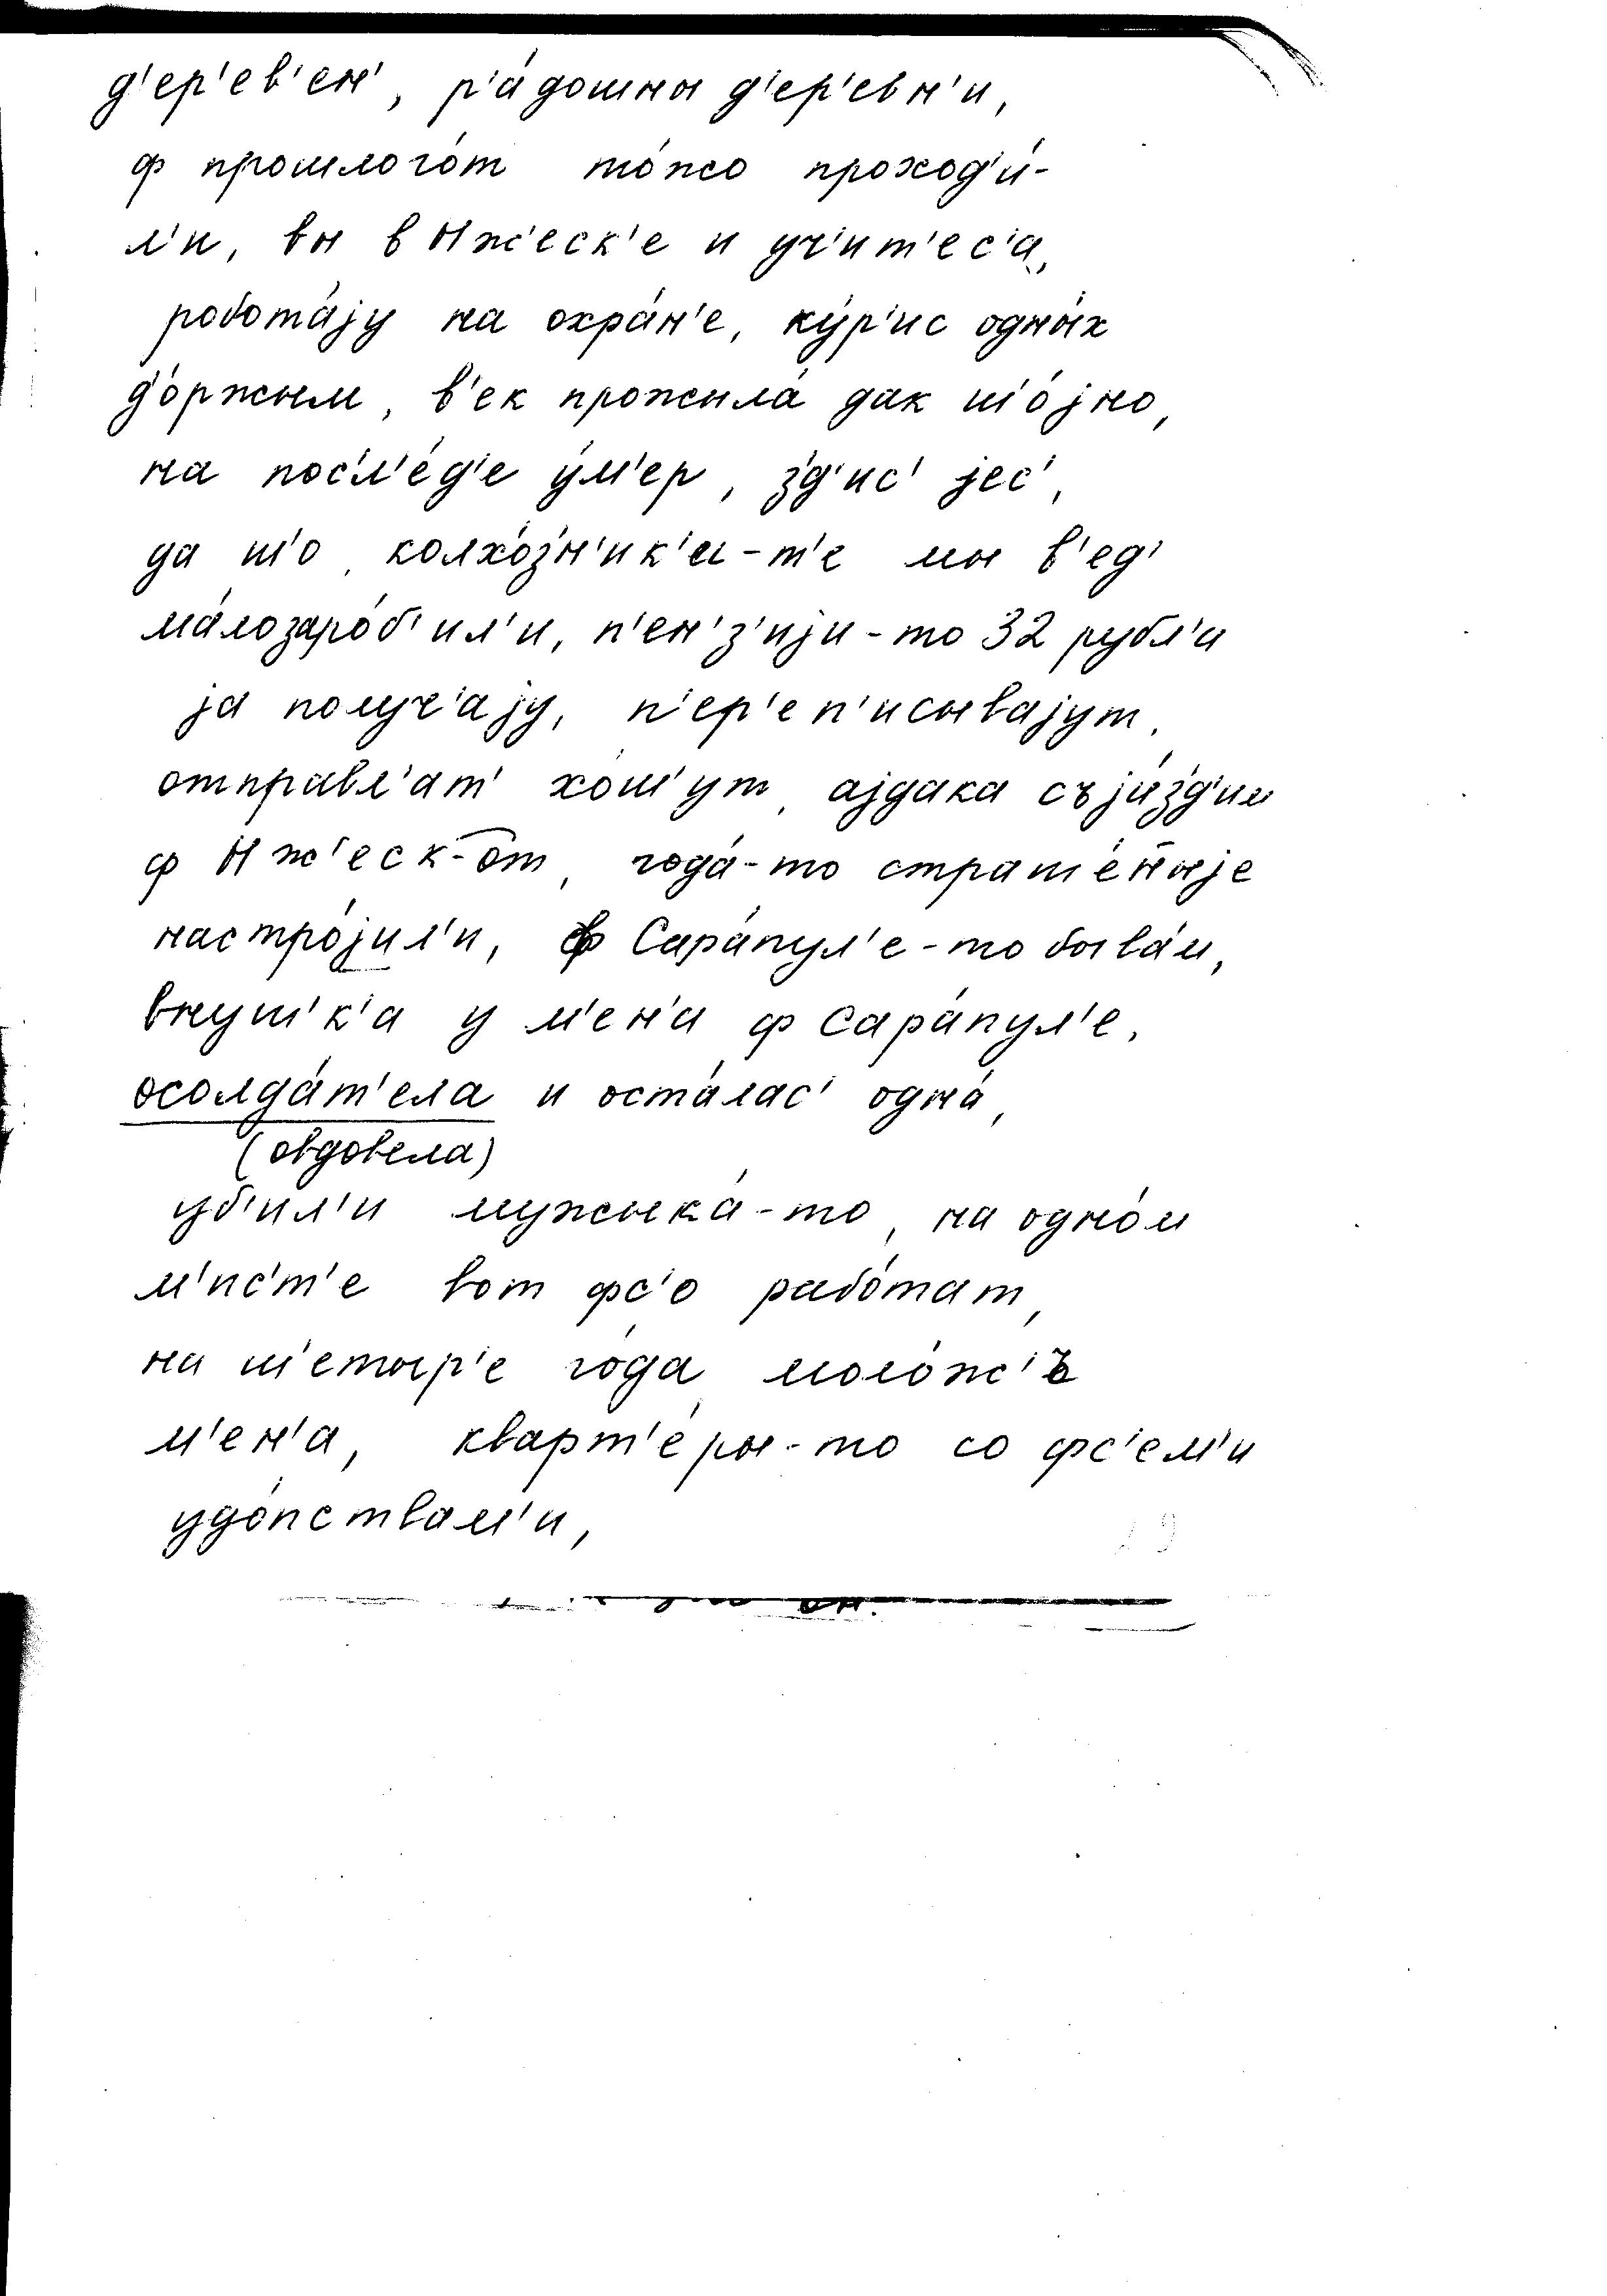 д'ер'ев'ен', р'а́дошны д'ер'евн'и,
ф прошлого́т то́жо проход'и́-
л'и, вы в Иж'еск'е и уч'ит'ес'а,
робота́jу на охра́н'е, ку́р'ис одны́х
д'о́ржым, в'ек прожыла́ дак ш'о́jно,
на посл'е́д'е у́м'ер, з'д'ис' jес',
да ш'о, колхо́з'н'ик'и-т'е мы в'ед'
ма́лозаро́б'ил'и, п'ен'з'иjи-то 32 рубл'а
jа получ'аjу, п'ер'еп'исывajут,
отправл'ат' хо́ш'ут, аjдака съjи́з'д'им
ф Иж'еск-от, года́-то страш'е́ныjе
настро́jил'и, ф Сара́пул'е-то быва́м,
внуш'к'а у м'ен'а ф Сара́пул'е,
осолда́т'ела и оста́лас' одна́,
(овдовела)
уб'ил'и мужыка́-то, на одно́м
м'ис'т'е вот фс'о рабо́тат,
на ш'етыр'е го́да моло́ж'ъ
м'ен'а, кварт'е́ры-то со фс'ем'и
удо́пствам'и,